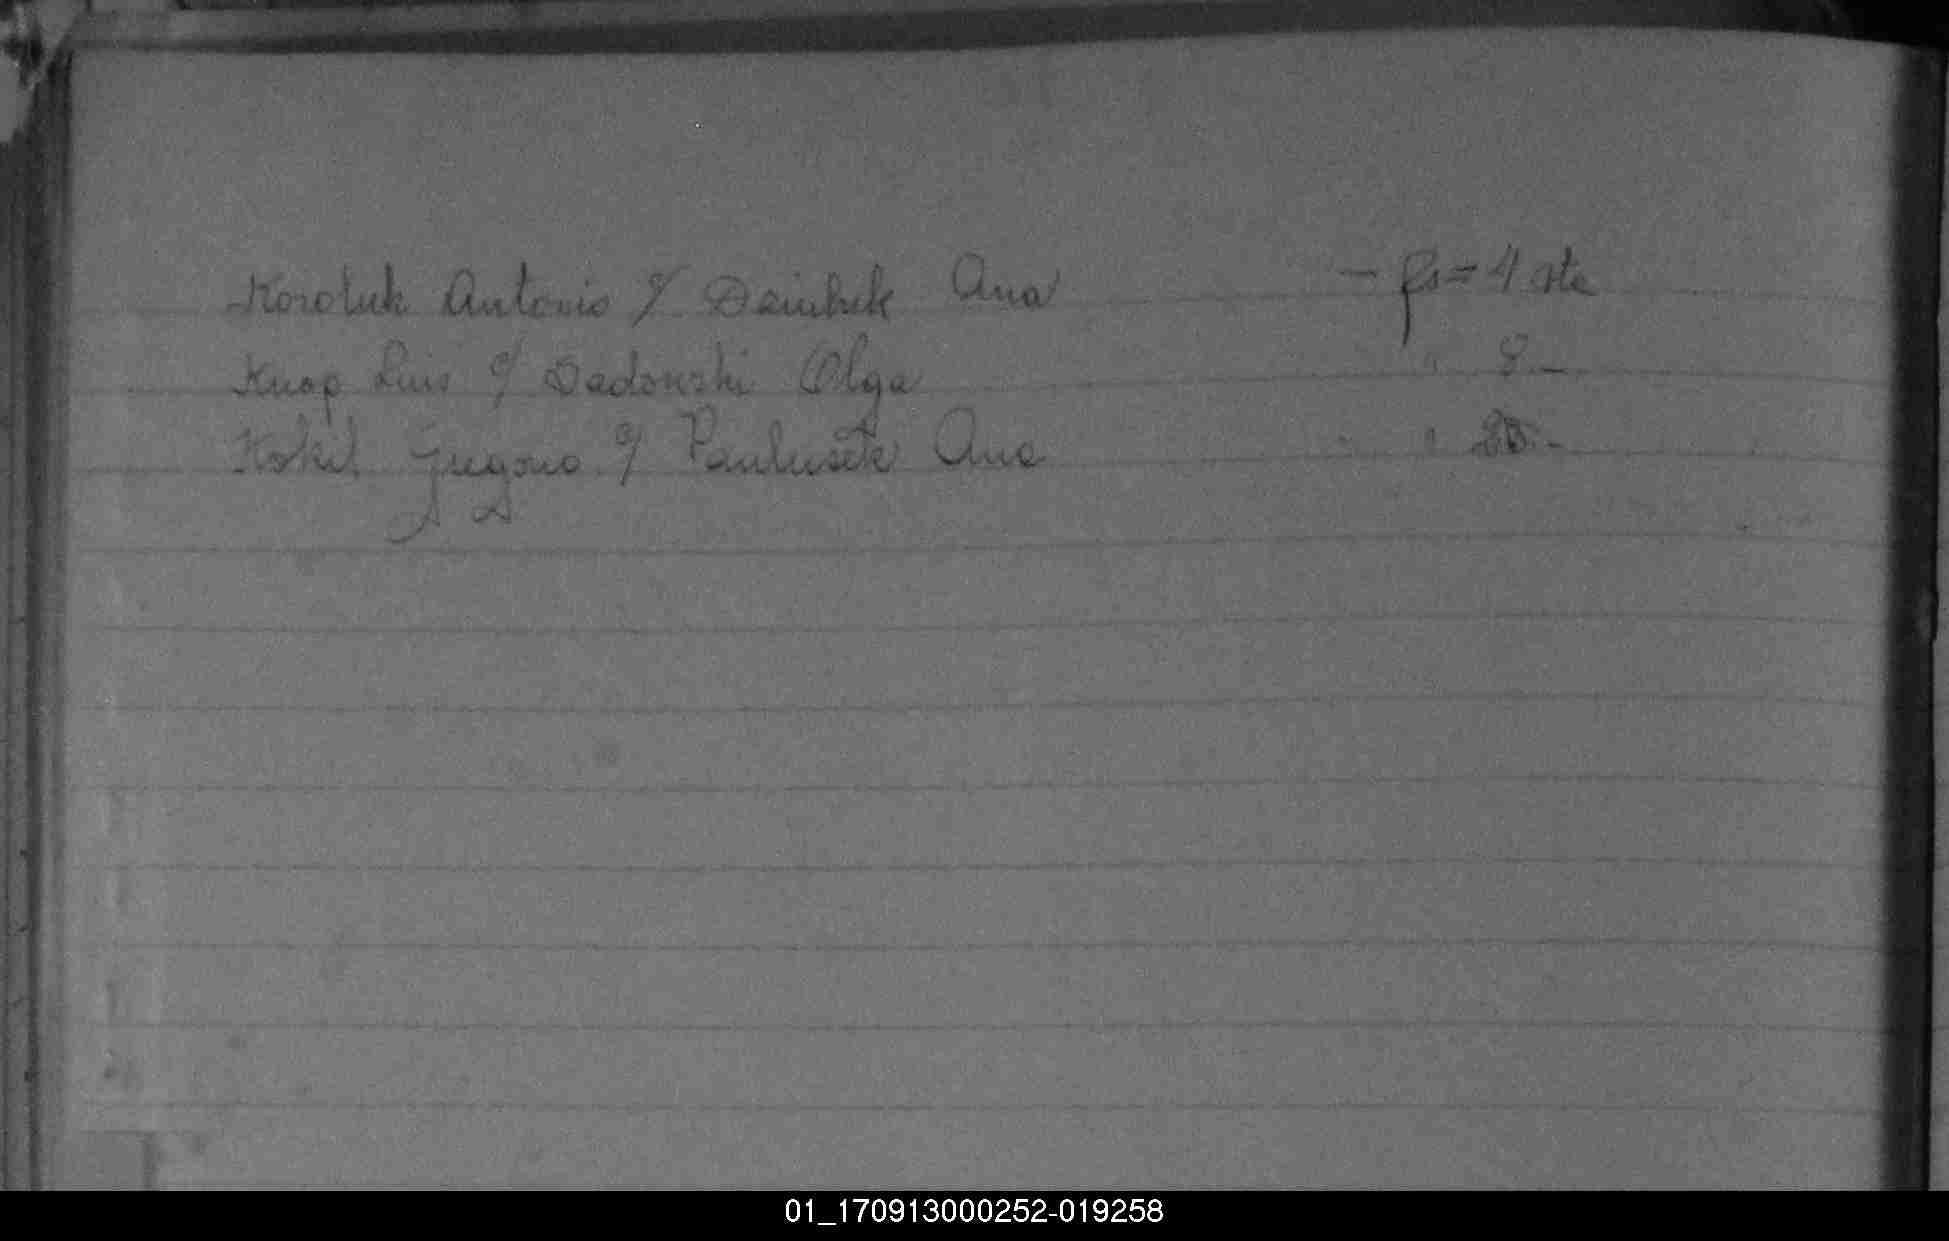 Koroluk Antonio c/ Dziubek Ana — fs = 4 vta
Knap Luis c/ Sadowski Olga " 8 -
Kokil Gregorio c/ Ana " -
01_170913000252-019258